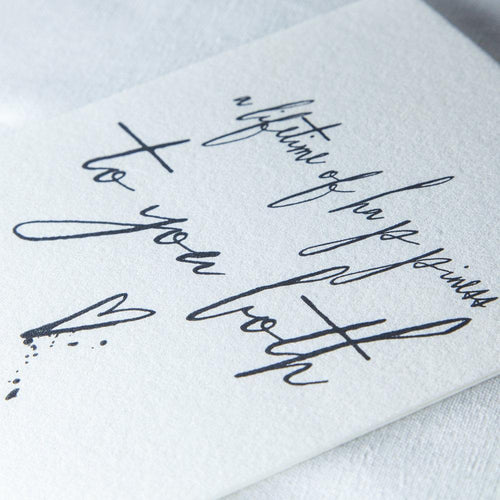 a lifetime of happiness
to you both